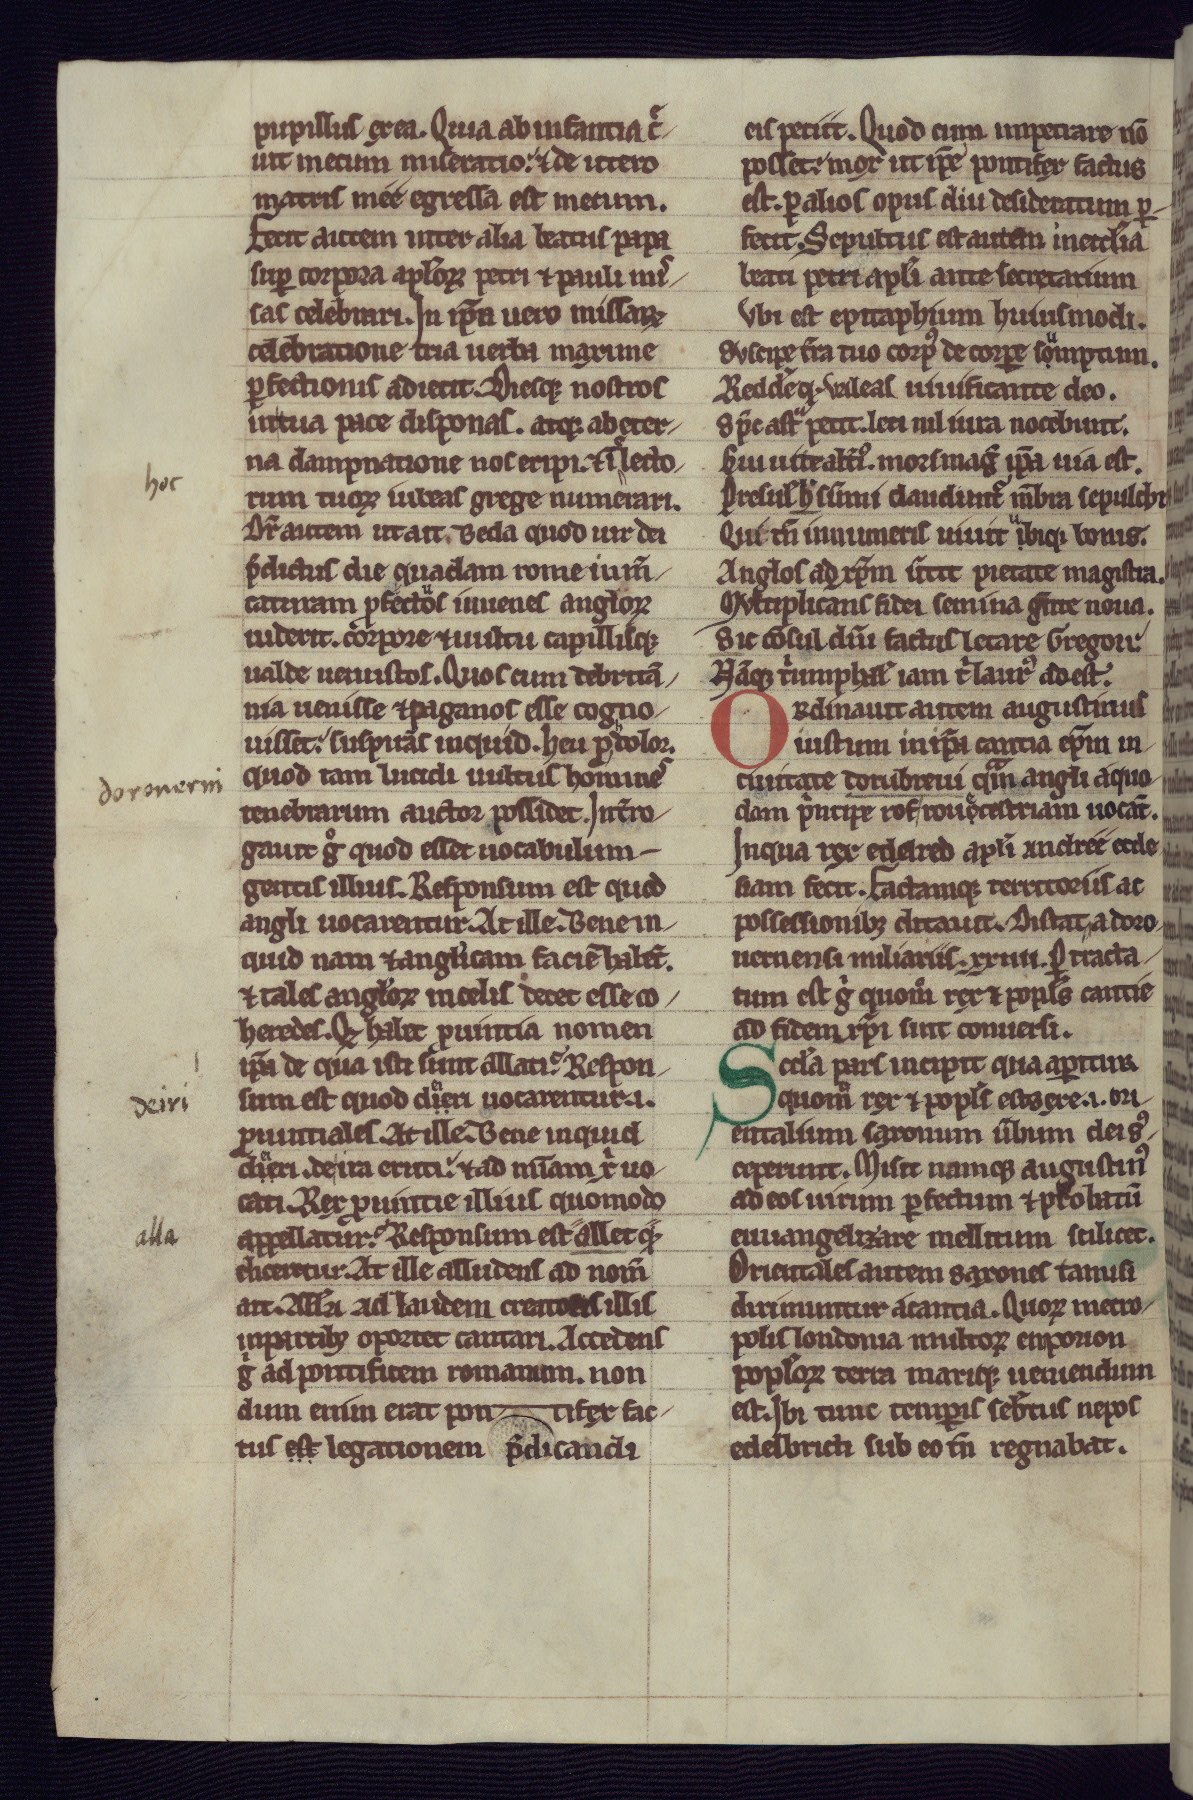 pupillus erea. Quia ab infantia c̃-
uit mecum miseratio: ⁊ de utero
matris meę egressa est mecum.
Fecit autem inter alia beatus papa
sup̲ corpora apl̓oꝝ petri ⁊ pauli mis-
sas celebrari. In ip̄a uero missaꝝ
celebratione tria uerba maxime
ꝑfectionis adiecit. Diesqꝫ nostros
in tua pace disponas. atqꝫ ab eter-
na dampnatione nos eripi. ⁊ ĩ lecto-
rum tuoꝝ iubeas grege numerari.
Dr̄ autem ut ait. Beda quod uir dei
p̄dictus die quadam rome in m̄-
catum ꝓfectos iuuenes angloꝝ
uiderit. corpore ⁊ uultu capillisqꝫ
ualde uenustos. Quos cum de brita-
nia uenisse ⁊ paganos esse cogno-
uisset: suspirās inquid. heu ꝓ dolor.
quod tam lucidi uultus homines
tenebrarum auctor possidet. Int̄ro-
gauit g° quod esset uocabulum
gentis illius. Responsum est quod
angli uocarentur. At ille. Bene in-
quid nam ⁊ anglicam faciē habēt.
⁊ tales angloꝝ in celis decet esse co-
heredes. Qd̄ habet ꝓuintia nomen
ip̄a de qua isti sunt allati? Respon-
sum est quod dieri uocarentur .i.
ꝓuintiales. At ille. Bene inquid
dieri. de ira eruti: ⁊ ad mīam xp̄i uo-
cati. Rex ꝓuintie illius quomodo
appellatur? Responsum est allet qd̄
diceretur. At ille alludens ad nom̄
ait. All̓a ad laudem creatoris illis
in partibꝫ oportet cantari. Accedens
g° ad pontificem romanum. non
dum enim erat pontifex fac-
tus est legationem p̄dicandi
hoc
doronerni
deiri
alla
eis petiit. Quod cum impetrare nō
posset: mox ut ip̄e pontifex factus
est. ꝑ alios opus diu desideratum ꝑ-
fecit. Sepultus est autem in eccl̓ia
beati petri apl̓i ante secretarium
Vbi est epitaphium huiusmodi.
Suscipe t̄ra tuo corpꝰ de corpore sumptum.
Reddeqꝫ. ualeas uiuificante deo.
Sp̄c astra petit. leti nil iura nocebunt.
Cui uite alt̓iꝰ. mors mag̓ ip̄a uia est.
Presul̓ h̓ sūmi claudunt̓ m̄bra sepulchr̓
Qui tn̄ innumeris uiuit ubiqꝫ bonis.
Anglos ad xp̄m u̓tit pietate magistra.
Multiplicans fidei semina gēte noua.
Sic cōsul dn̄i factus letare Gregori
Nāqꝫ triumphal̓ iam t̓ laurꝰ adest.
Ordinauit autem augustinus
iustum in ip̄a cantia ep̄m in
ciuitate dorubreui qm̄ angli a quo-
dam p̓ncipe rof rouecestriam uocāt.
In qua rex edelred apl̓i andreę eccle
siam fecit. Factamqꝫ territoriis ac
possessionibꝫ ditauit. Distat a doro-
uernensi miliariis. xxiiii. Ꝑtracta-
tum est g° quom̄ rex ⁊ popl̓s cantie
ad fidem xp̄i sint conuersi.
Sec̄da pars incipit qua aperitur
quom̄ rex ⁊ popl̓s estsexe .i. ori
entalium saxonum u̓bum dei sus-
ceperunt. Misit namqꝫ augustinꝰ
ad eos uirum ꝑfectum ⁊ probatū
euuangelizare mellitum scilicet.
Orientales autem saxones tamisi
dirimuntur a cantia. Quoꝝ metro-
polis londonia multoꝝ emporion
popl̓oꝝ terra mariqꝫ ueniendum
est. Ibi tunc temporis seb̓tus nepos
edelbricti sub eo tn̄ regnabat.